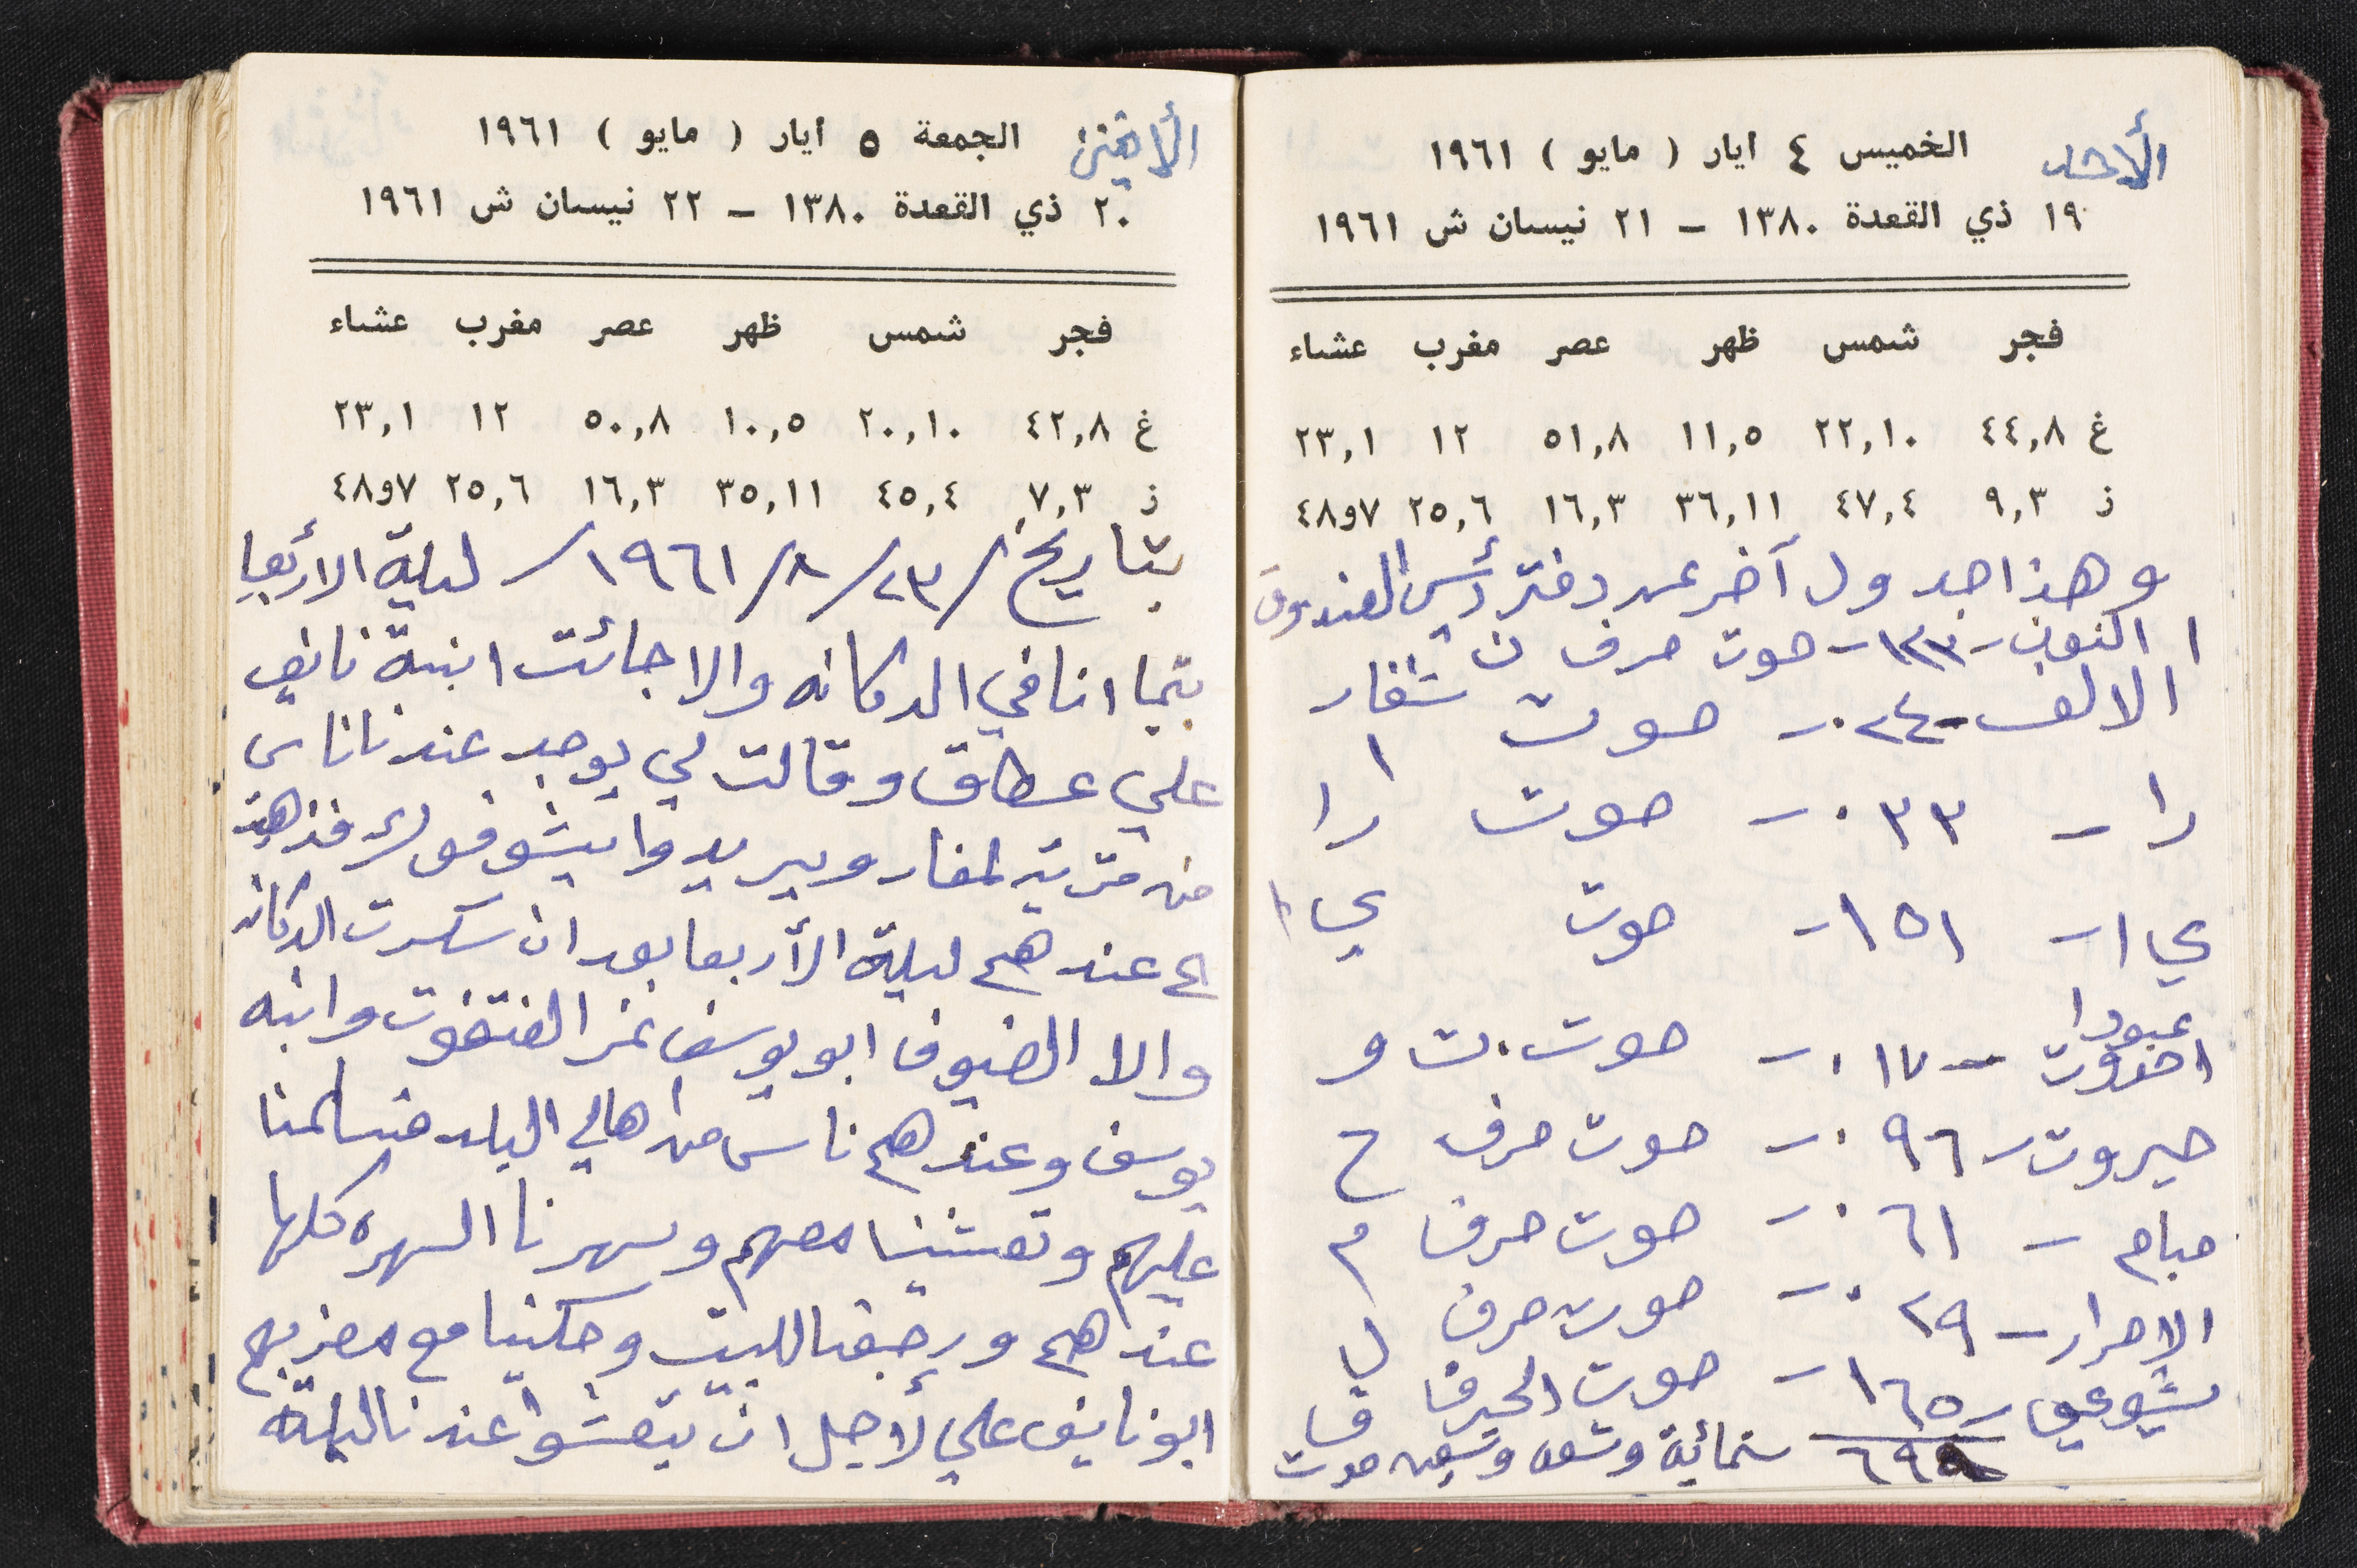 الأحد
الخميس ٤ ايار ( مايو ) ١٩٦١
١٩ ذي القعدة ١٣٨٠ – ٢١ نيسان ش ١٩٦١
فجر شمس ظهر عصر مغرب عشاء
غ ٤٤,٨ ٢٢,١٠ ١١,٥ ٥١,٨ ١٢ ٢٣,١
ذ ٩,٣ ٤٧,٤ ٣٦,١١ ١٦,٣ ٢٥,٦ ٧و٤٨
وهذا جدول آخر عن دفتر رئيس الصندوق
صوت حرف ن
الالف - ٢٤٠ - صوت ا
را - ٠٣٣ - صوت را
ي ا - ١٥١ - صوت ي ا
٠١٧ - صوت . ت و
حيروت - ٠٩٦ - صوت حرف ح
مبام - ٠٦١ - صوت حرف م
الاحرار - ٠٢٩ - صوت حرف ل
شيوعي - ١٦٥ - صوت الحرف ق
ستمائة وتسعه وتسعين صوت
الأثنين
الجمعة ٥ ايار ( مايو ) ١٩٦١
٢٠ ذي القعدة ١٣٨٠ – ٢٢ نيسان ش ١٩٦١
فجر شمس ظهر عصر مغرب عشاء
غ ٤٢,٨ ٢٠,١٠ ١٠,٥ ٥٠,٨ ١٢ ٢٣,١
ذ ٧,٣ ٤٥,٤ ٣٥,١١ ١٦,٣ ٢٥,٦ ٧و٤٨
بتاريخ / ٢٣ / ٨ / ١٩٦١ / ليلة الاربعا
بتما انا في الدكانه والا جائت ابنة نايف
علي عطاف وقالت لي يوجد عندنا ناس
من قرية لمغار ويريدوا يشوفوك فذهبة
الى عندهم ليلة الأربعا بعد ان سكرت الدكانه
والا الضيوف ابو يوسف نمر الفتخوت وابنه
يوسف وعندهم ناس من اهالي البلد فسلمنا
عليهم وتعشينا معهم وسهرنا السهره كلها
عندهم ورجعنا للبيت وحكينا مع معزبهم
ابو نايف علي لأجل ان يتعشوا عندنا ليلة